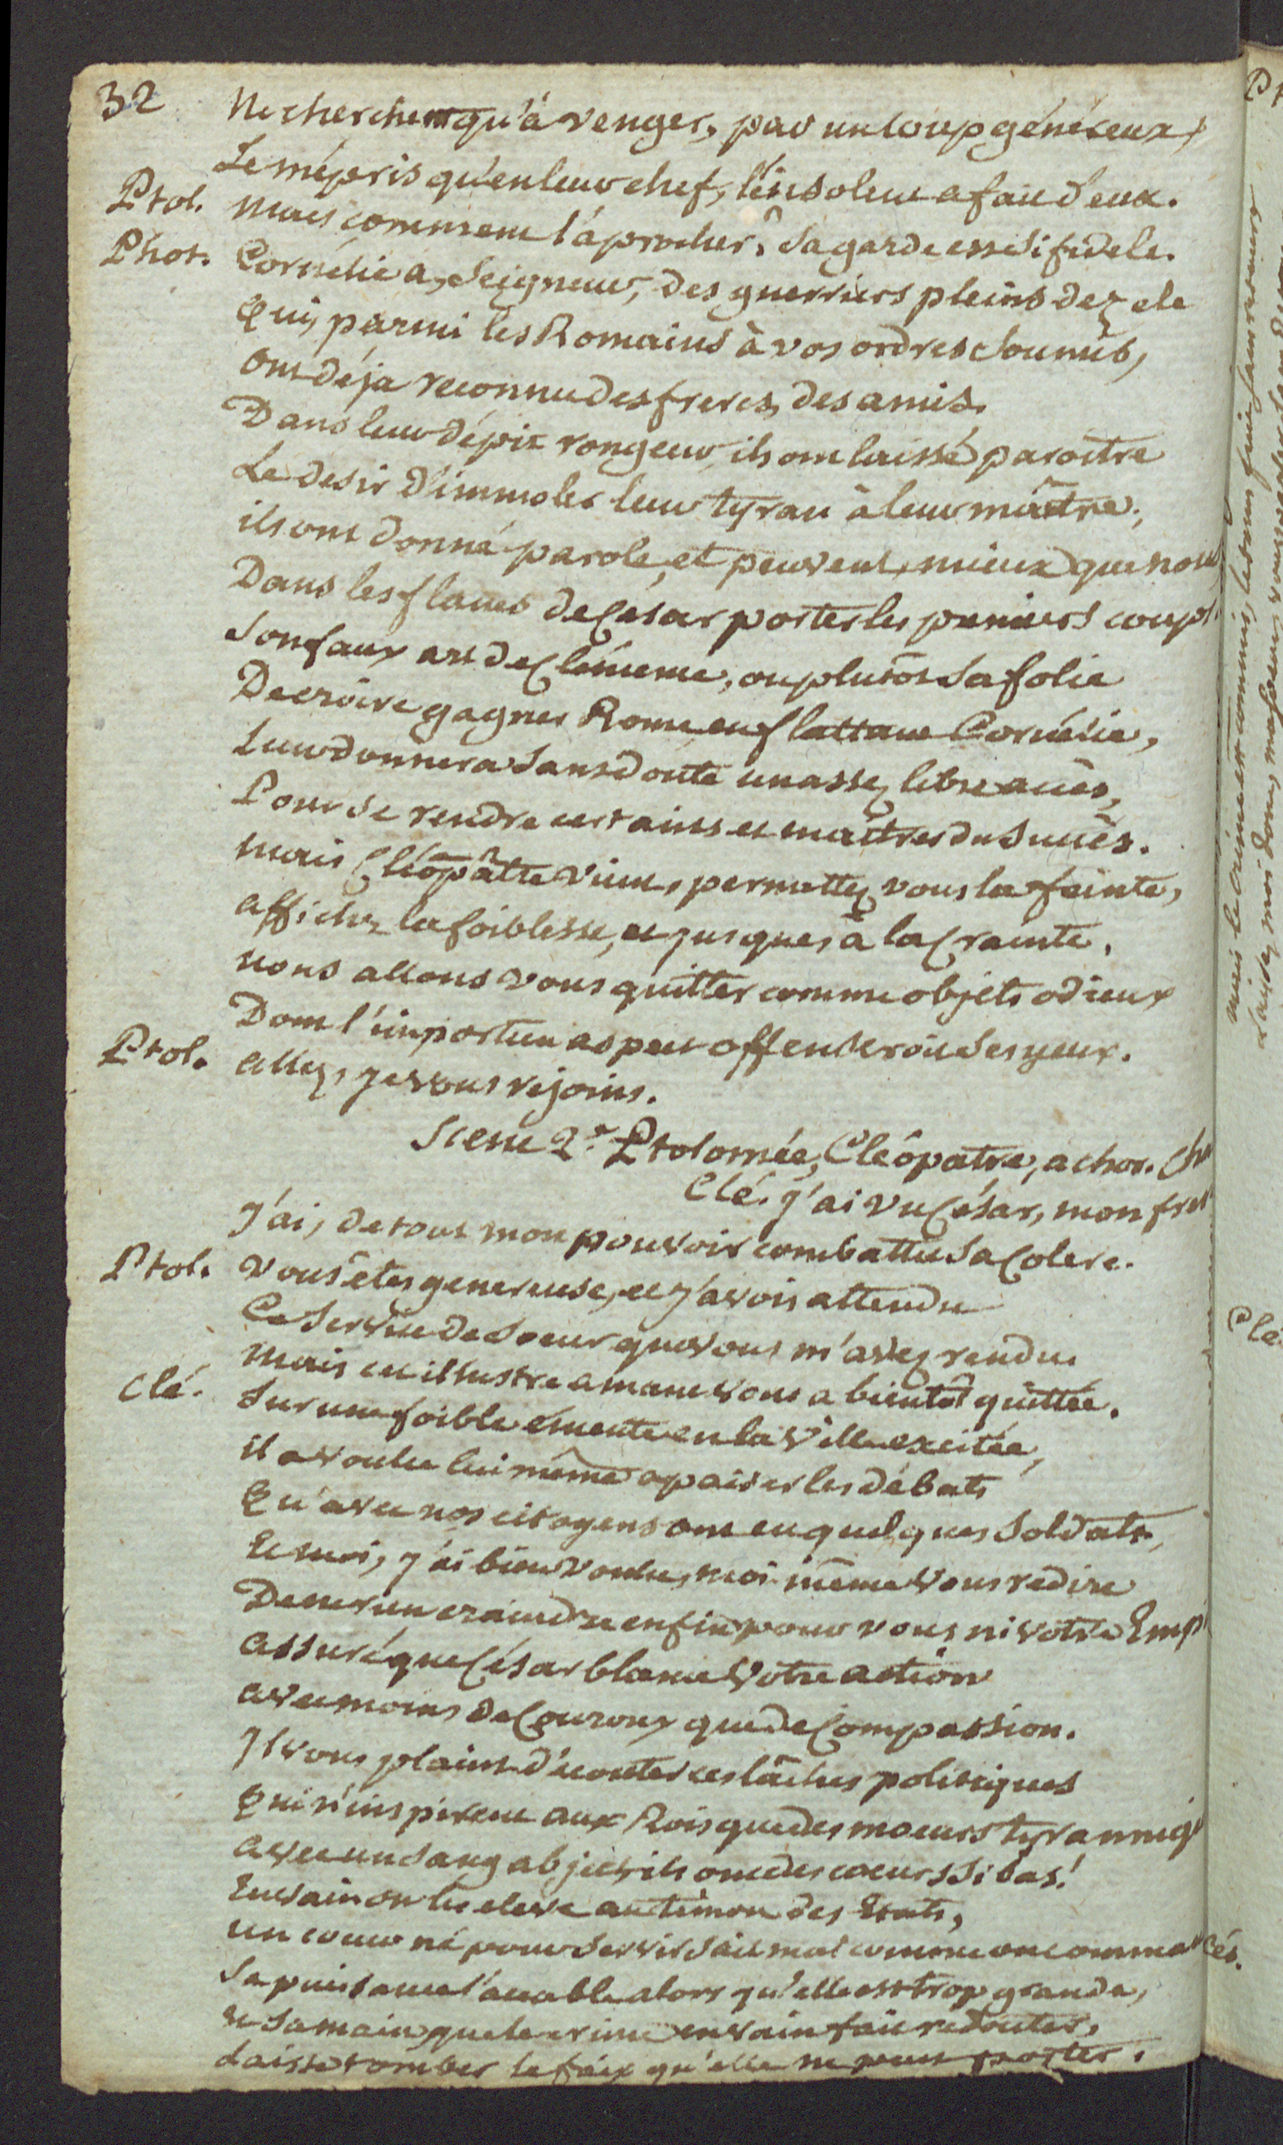 32
Ne cherchent qu'à venger, par un coup généreux,
Le mépris qu'en leur chef, l'insolent a fait d'eux.
Ptol. Mais comment l'aprocher? Sa garde est si fidele.
Phot. Cornélie a, Seigneur, des guerriers pleins de zele
Qui, parmi les Romains à vos ordres soumis,
Ont déja reconnu des freres, des amis.
Dans leur dépit rongeur, ils ont laissé paroitre
Le desir d'immoler leur tyran à leur maître;
ils ont donné parole, et peuvent, mieux que nous,
Dans les flancs de César porter les premiers coups.
Son faux art de Clémence, ou plutôt sa folie
De croire gagner Rome en flattant Cornélie,
Leur donnera sans doute un assez libre accès,
Pour se rendre certains et maîtres du succès.
Mais Cléopâtre vient, permettez vous la feinte,
affichez la foiblesse, et jusques à la Crainte.
nous allons vous quitter comme objets odieux
Dont l'importun aspect offenseroit ses yeux.
Ptol. Allez, je vous rejoins.
Scene 2e. Ptolomée, Cléopatre, achor.
Clé. J'ai vu César, mon frere
J'ai, de tout mon pouvoir combattu sa Colere.
Ptol. Vous êtes genereuse, et j'avois attendu
Ce service de soeur que vous m'avez rendu.
Mais cet illustre amant vous a bientôt quittée.
Clé. Sur une foible émeute en la Ville excitée,
il a voulu lui même apaiser les débats
Qu'avec nos citoyens ont eu quelques Soldats,
Et moi, j'ai bien voulu, moi même vous redire
De ne rien craindre enfin pour vous ni votre Emp
Assuré que César blame votre action
avec moins de Couroux que de Compassion.
Il vous plaint d'écouter ces lâches politiques
Qui n'inspirent aux Rois que des moeurs tyranniq
Avec un sang abject, ils ont des coeurs si bas!
En vain on les eleve au timon des Etats,
un coeur né pour servir sait mal comme on comma
Sa puissance l'accable alors qu'elle est trop grande,
et sa main, que le crime en vain fait redouter,
Laisse tomber le faix qu'elle ne peut porter.
mais le crime est commis,
Laissez moi donc,
Clé
Cés.